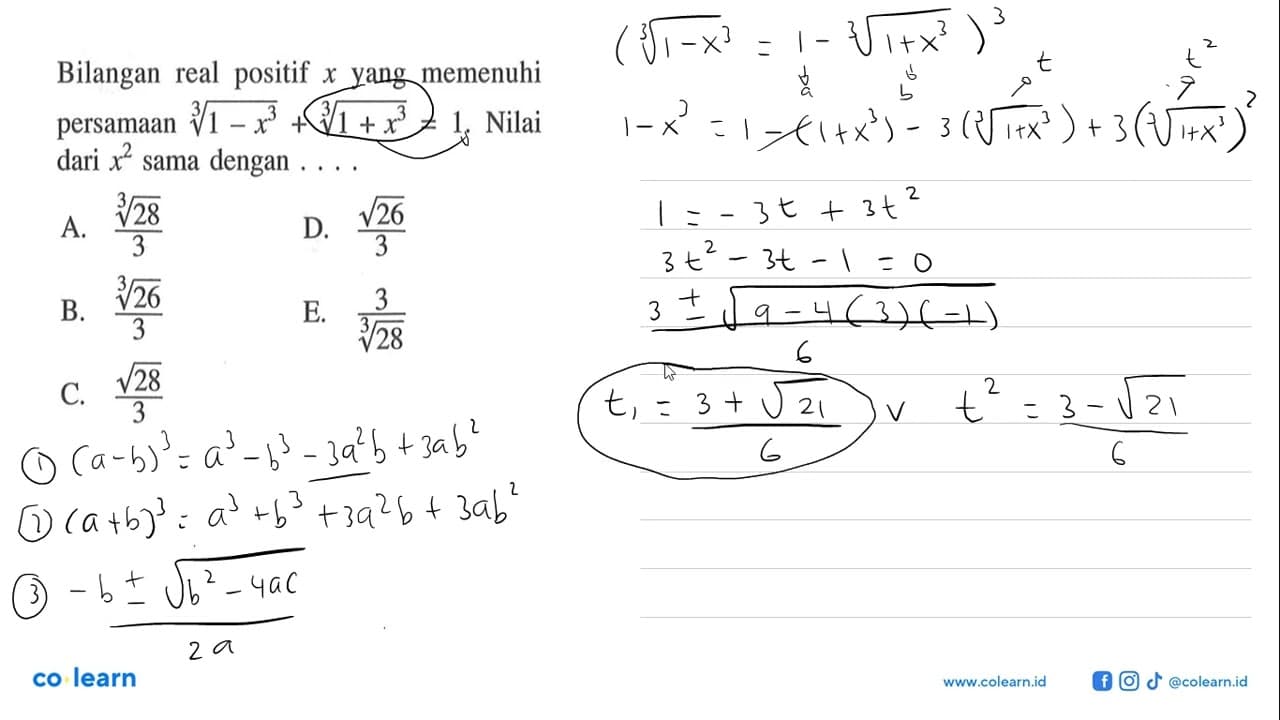 Bilangan real positif x yang memenuhi
persamaan ∛(1 − x³) + ∛(1 + x³) = 1. Nilai
dari x² sama dengan . . . .
A. ∛28/3
B. ∛26/3
C. √28/3
D. √26/3
E. 3/∛28
① (a-b)³ = a³ - b³ - 3a²b + 3ab²
② (a+b)³ = a³ + b³ + 3a²b + 3ab²
③ (-b ± √(b² - 4ac))/2a
(∛(1-x³) = 1 - ∛(1+x³))³
a b t t²
1-x³ = 1 - (1+x³) - 3(∛(1+x³)) + 3(∛(1+x³))²
1 = -3t + 3t²
3t² - 3t - 1 = 0
(3 ± √(9 - 4(3)(-1)))/6
t₁ = (3 + √21)/6 v t² = (3 - √21)/6
co·learn
www.colearn.id
@colearn.id